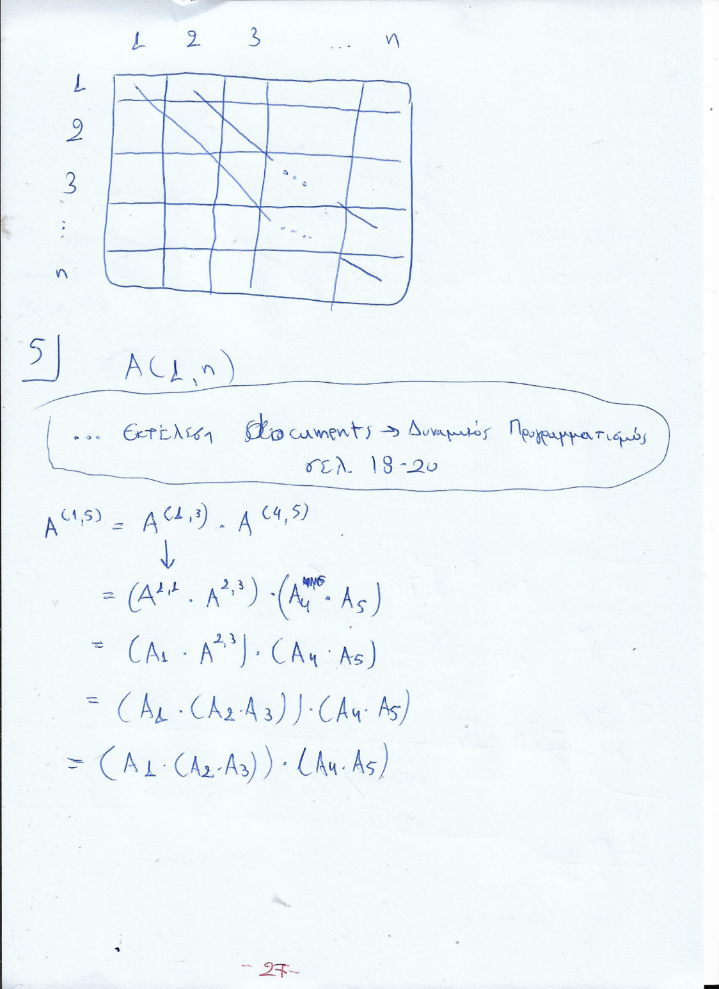 1 2 3 ... n
1
2
3 ...
⋮ ....
n
5] A(1,n)
... Εκτέλεση documents → Δυναμικός Προγραμματισμός
σελ. 18-20
A^(1,5) = A^(1,3) · A^(4,5)
↓
= (A^1,1 · A^2,3) · (A₄ · A₅)
= (A₁ · A^2,3) · (A₄ · A₅)
= (A₁ · (A₂ · A₃)) · (A₄ · A₅)
= (A₁ · (A₂ · A₃)) · (A₄ · A₅)
- 27 -